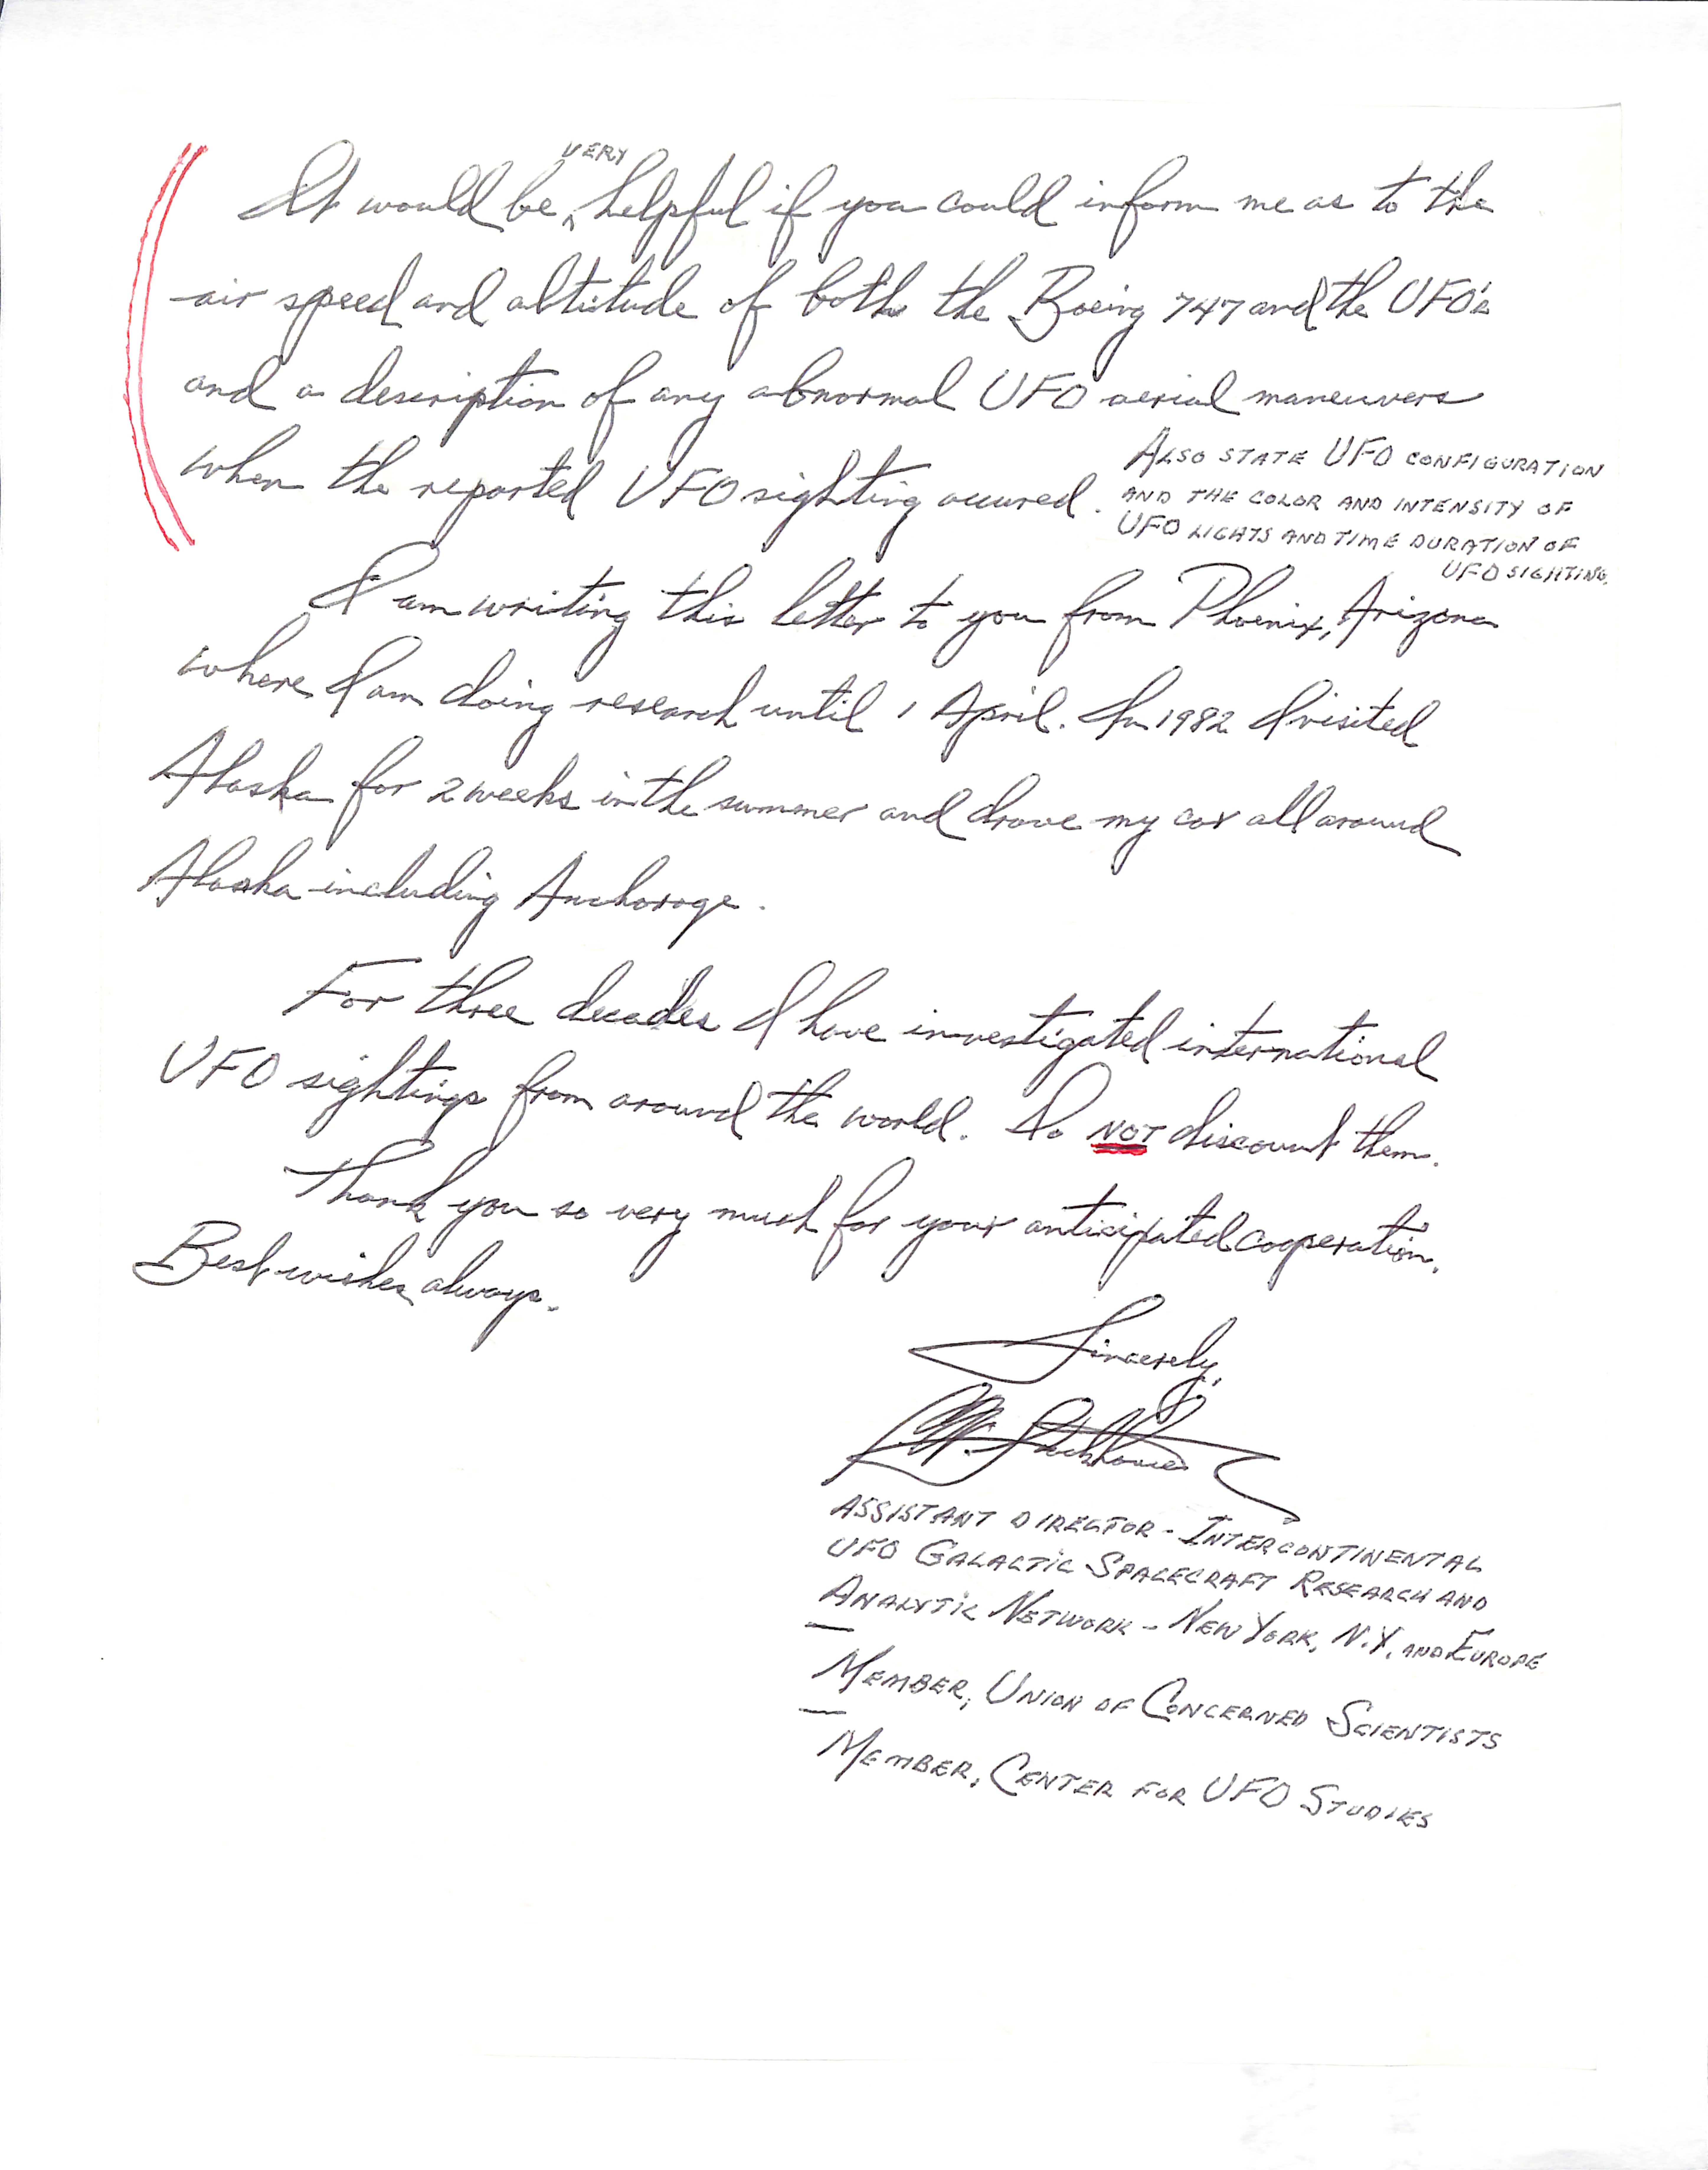 It would be VERY helpful if you could inform me as to the
air speed and altitude of both the Boeing 747 and the UFO's
and a description of any abnormal UFO aerial maneuvers
when the reported UFO sighting occured.
ALSO STATE UFO CONFIGURATION
AND THE COLOR AND INTENSITY OF
UFO LIGHTS AND TIME DURATION OF
UFO SIGHTING.
I am writing this letter to you from Phoenix, Arizona
where I am doing research until 1 April. In 1982 I visited
Alaska for 2 weeks in the summer and drove my car all around
Alaska including Anchorage.
For three decades I have investigated international
UFO sightings from around the world. Do NOT discount them.
Thank you so very much for your anticipated cooperation.
Best wishes always.
Sincerely,
ASSISTANT DIRECTOR - INTERCONTINENTAL
UFO GALACTIC SPACECRAFT RESEARCH AND
ANALYTIC NETWORK - NEW YORK, N.Y. AND EUROPE
MEMBER, UNION OF CONCERNED SCIENTISTS
MEMBER, CENTER FOR UFO STUDIES